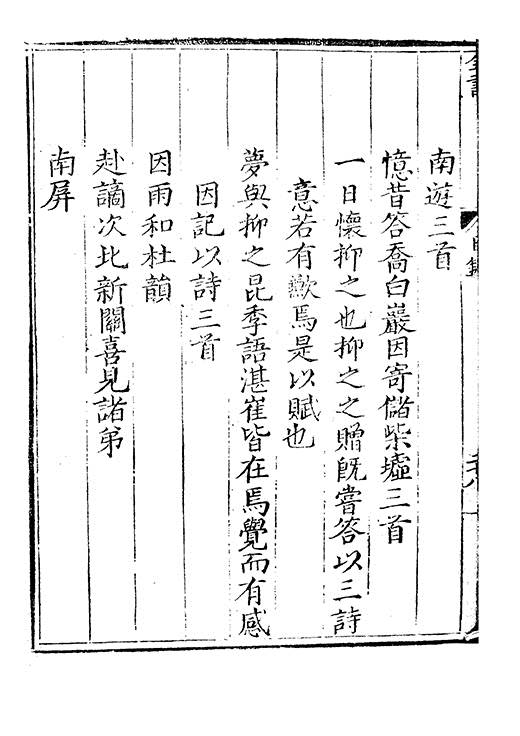 南遊三首
憶昔答喬白巖因寄儲柴墟三首
一日懷抑之也抑之之贈旣嘗答以三詩
意若有歉焉是以賦也
夢與抑之昆季語湛崔皆在焉覺而有感
因記以詩三首
因雨和杜韻
赴謫次北新關喜見諸弟
南屏